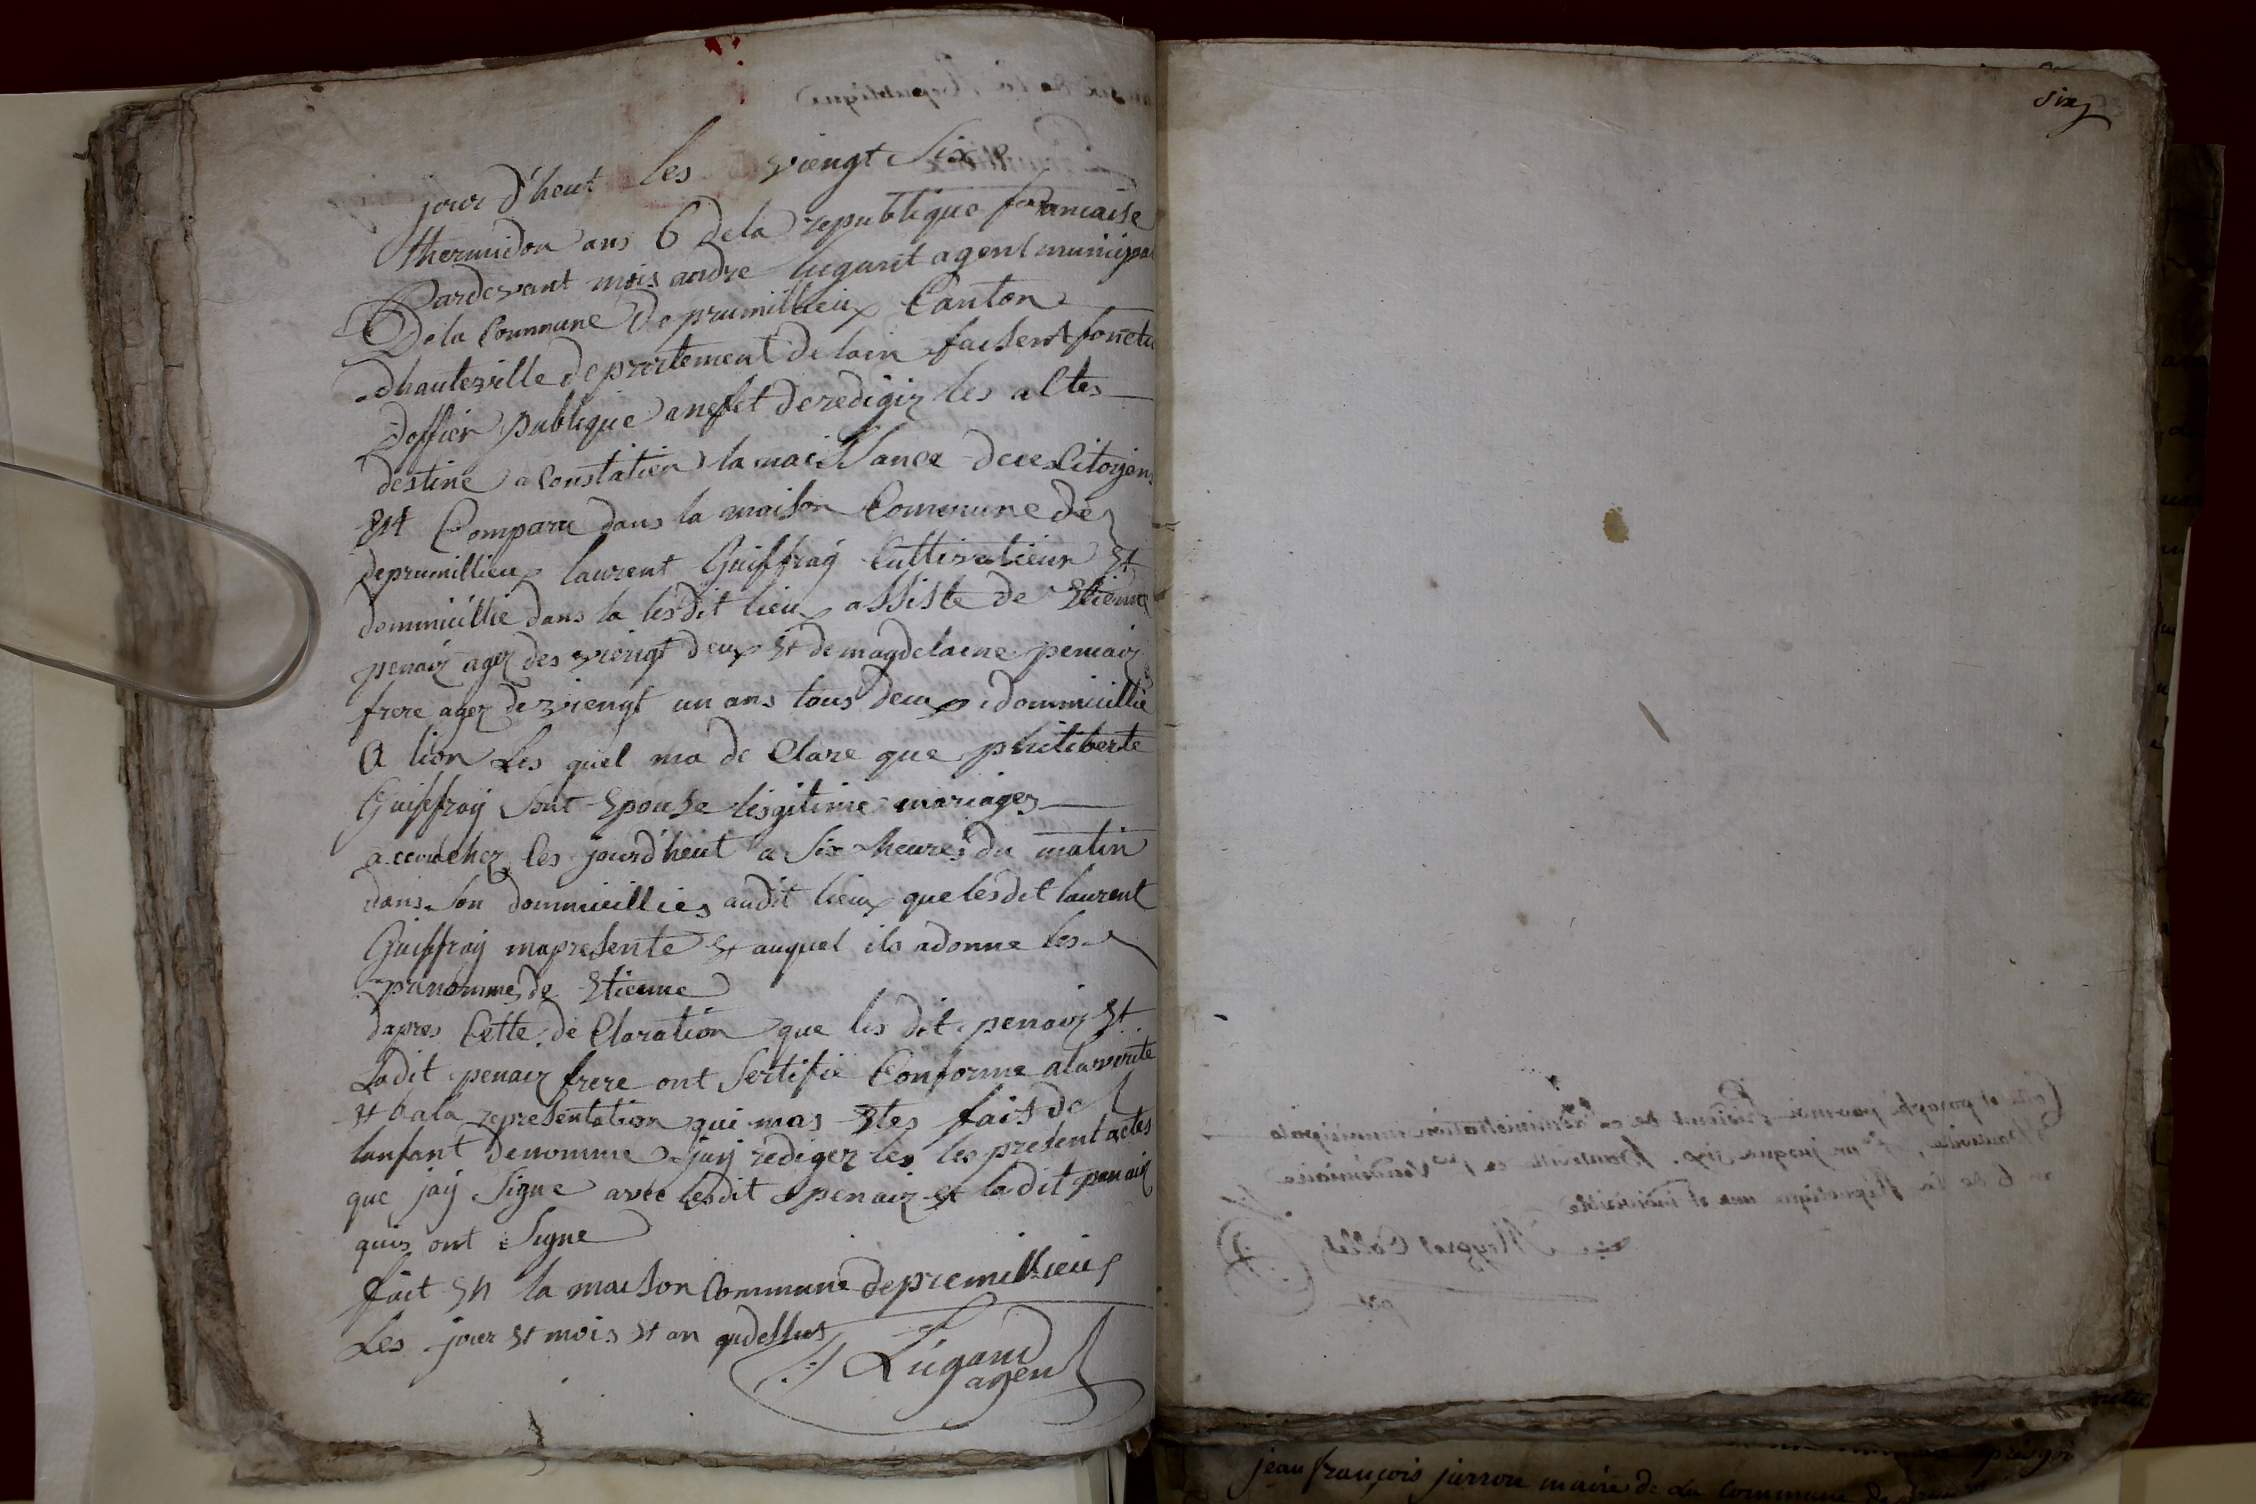 jour d'heut les viengt Six
thermidor ans 6 dela republique francaise
Pardevant mois andre lugant agent municipal
De la Commune De prumillieux Canton
dhauteville deprortement de lain faisent foncti
doffier publique anefet de redigir les altes
destine a Constatier la naissance de ces Citoyens
Est Comparu dans la maison Commune de
deprumillieux laurent Guiffray Cultivatieur Et
dommicillie dans la lesdit lieux assiste de Etienne
penair agez des viengt deux Et de magdelaine penair
frere agez de viengt un ans tous deux dommicillie
A lion Les quel ma de Clare que philiberte
Guiffray Sont Epouse lesgitime mariages
accouchez les jourd'heut a Six heures du matin
dans Son dommicillies audit lieux que lesdit laurent
Guiffray mapresente Et auquel ils adonne les
prenomme de Etienne
dapres Cette de Claration que les dit penair Et
Ladit penair frere ont Sertifie Conforme a la verite
Et a la representation qui mas Etes fait de
lanfant denomme jay rediger les les present actes
que jay Signe avec lesdit penair et ladit penair
quis ont Signe
fait En la maison Commune de premillieux
Les jour Et mois Et an qudessus
Lugand
agent
Six
jean françois jurron maire de la Commune de